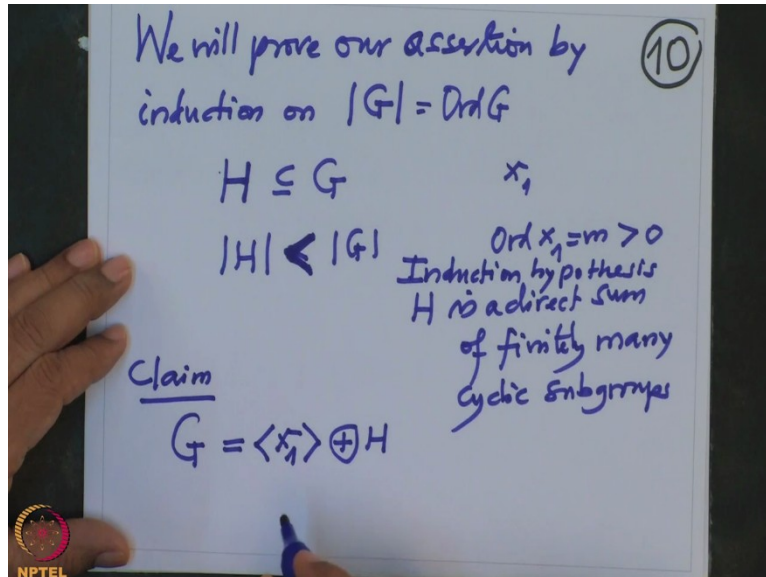 We will prove our assertion by
10
induction on |G| = Ord G
H ⊆ G
x₁
|H| < |G|
Ord x₁ = m > 0
Induction hypothesis
H is a direct sum
of finitely many
cyclic subgroups
Claim
G = ⟨x₁⟩ ⊕ H
NPTEL